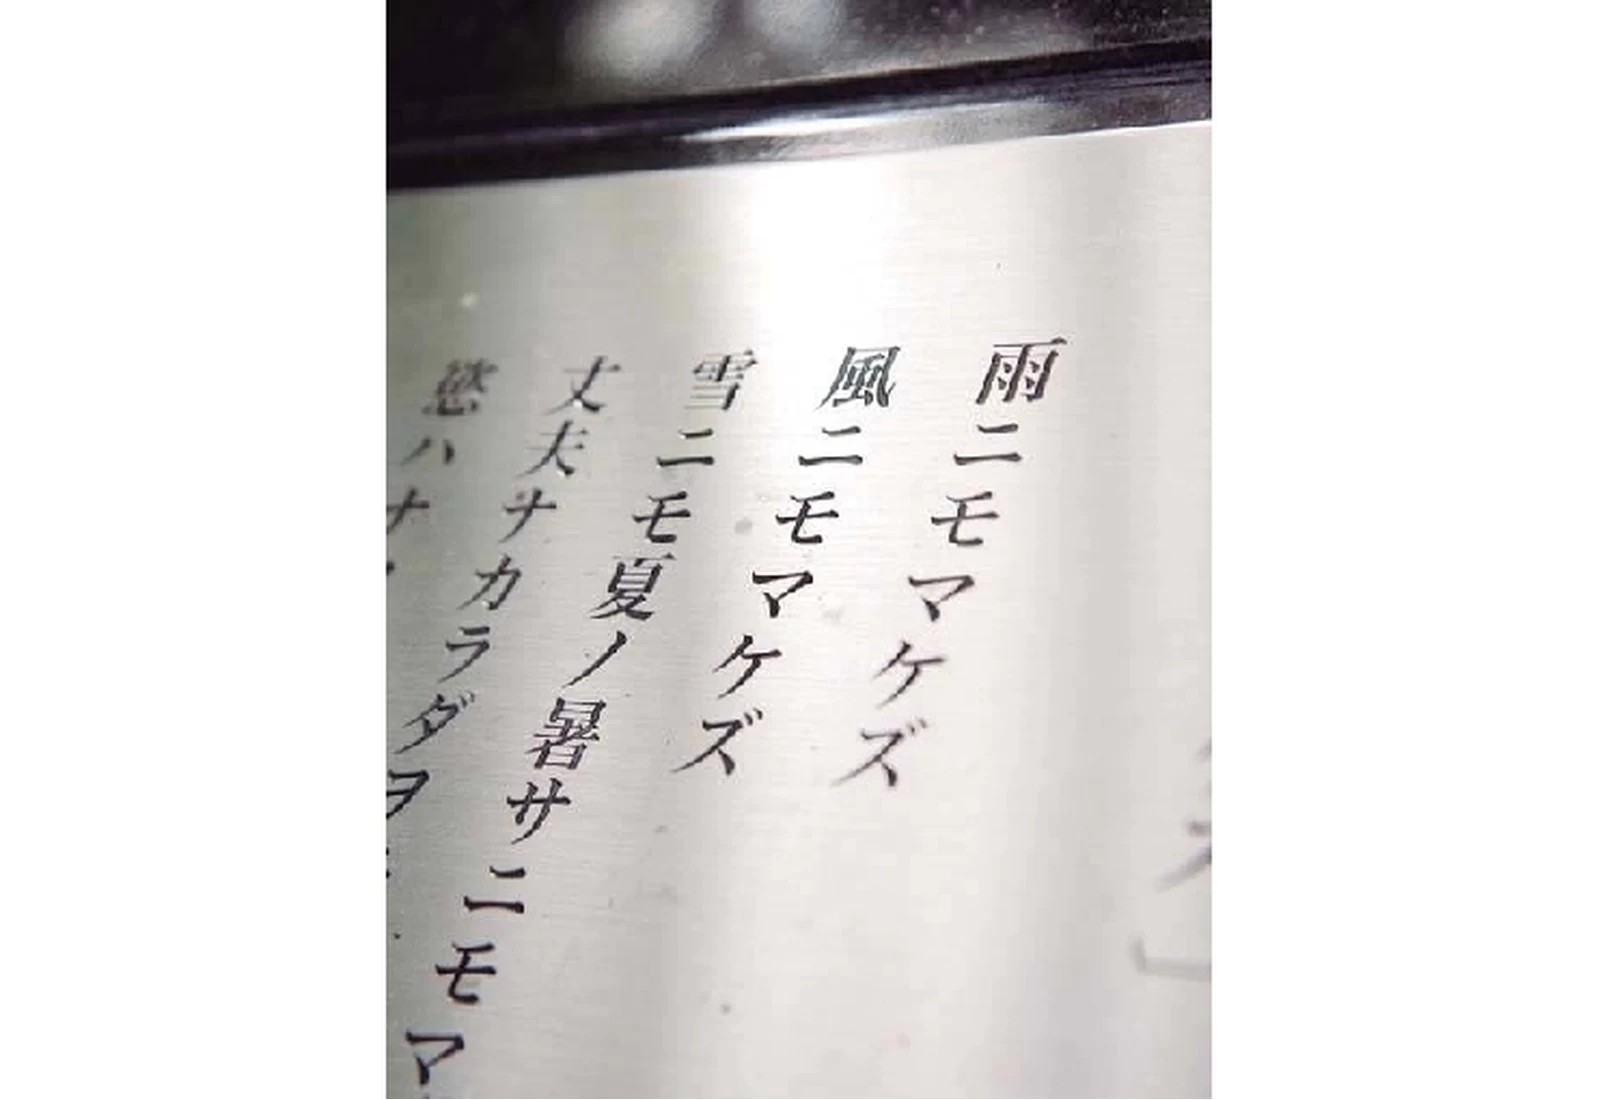 雨ニモマケズ
風ニモマケズ
雪ニモ夏ノ暑サニモマ
丈夫ナカラダヲ
慾ハナ